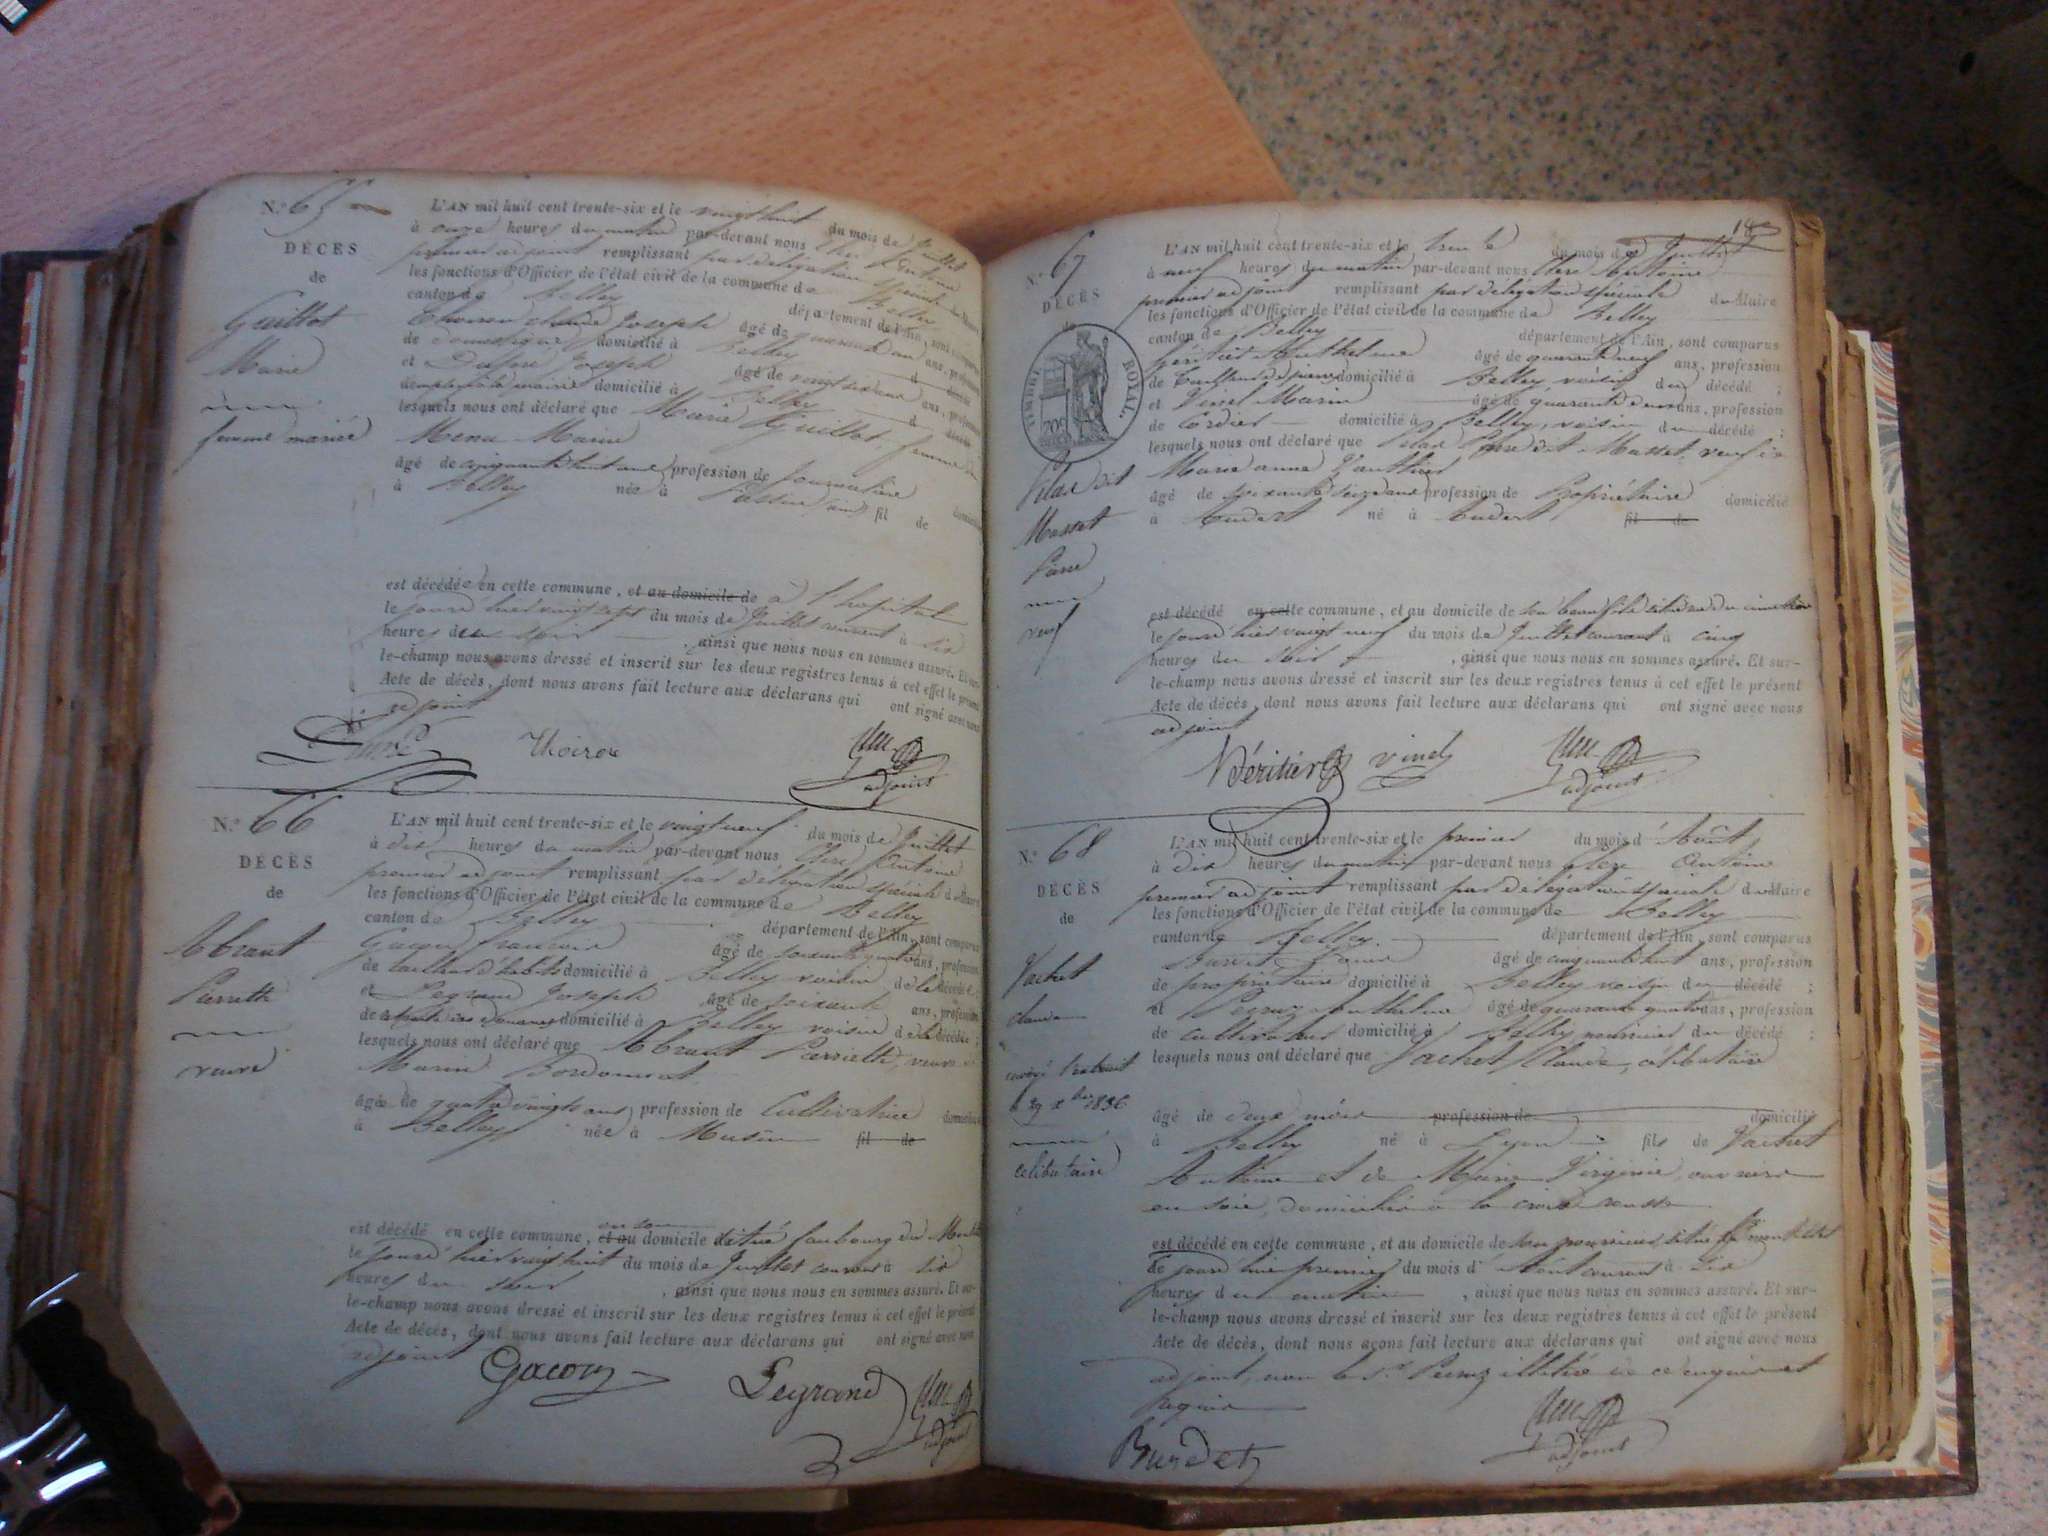 N.° 65
DÉCÈS
de
Guillot
Marie
femme mariée
L'AN mil huit cent trente-six et le vingt huit du mois de Juillet
à onze heures du matin par-devant nous
premier adjoint remplissant par délégation spéciale du Maire
les fonctions d'Officier de l'état civil de la commune de Belley
canton de Belley département de l'Ain, sont comparus
Joseph âgé de quarante un ans, profession
de domestique domicilié à Belley
et Joseph âgé de vingt six ans, profession
domicilié à Belley
lesquels nous ont déclaré que Marie Guillot, femme de
Menu Marin
âgé de cinquante huit ans profession de journalière domicilié
à Belley née à fil de
est décédée en cette commune, et au domicile de à l'hopital
le jour d'hier vingt sept du mois de Juillet courant à six
heures du soir , ainsi que nous nous en sommes assuré. Et sur-
le-champ nous avons dressé et inscrit sur les deux registres tenus à cet effet le présent
Acte de décès, dont nous avons fait lecture aux déclarans qui ont signé avec nous
adjoint
adjoint
N.° 66
DÉCÈS
de
Abrant
Pierrette
veuve
L'AN mil huit cent trente-six et le vingt neuf du mois de Juillet
à dix heures du matin par-devant nous Antoine
premier adjoint remplissant par délégation spéciale du Maire
les fonctions d'Officier de l'état civil de la commune de Belley
canton de Belley département de l'Ain, sont comparus
Gacon françois âgé de soixante quatre ans, profession
de tailleur d'habits domicilié à Belley voisin de la décédée
et Legrand Joseph âgé de soixante ans, profession
de domicilié à Belley voisin de la décédée ;
lesquels nous ont déclaré que Abrant Pierrette, veuve de
Marin
âgée de quatre vingts ans profession de Cultivatrice domicilié
à Belley née à fil de
est décédé en cette commune, et au domicile en son situé faubourg du
le jour d'hier vingt huit du mois de Juillet courant à six
heures du soir , ainsi que nous nous en sommes assuré. Et sur-
le-champ nous avons dressé et inscrit sur les deux registres tenus à cet effet le présent
Acte de décès, dont nous avons fait lecture aux déclarans qui ont signé avec nous
adjoint
Gacon Legrand
adjoint
N.° 67
DÉCÈS
de
TIMBRE ROYAL.
Pilar dit
Masset
Pierre
veuf
L'AN mil huit cent trente-six et le trente du mois de Juillet
à neuf heures du matin par-devant nous Antoine
premier adjoint remplissant par délégation spéciale du Maire
les fonctions d'Officier de l'état civil de la commune de Belley
canton de Belley département de l'Ain, sont comparus
héritier Anthelme âgé de quarante neuf ans, profession
de Tailleur de pierre domicilié à Belley, voisin du décédé ;
et Vinel Marin âgé de quarante deux ans, profession
de Cordier domicilié à Belley, voisin du décédé ;
lesquels nous ont déclaré que Pilar Pierre dit Masset, veuf de
Marie anne
âgé de soixante seize ans profession de Propriétaire domicilié
à né à fil de
est décédé en cette commune, et au domicile de son beau fils situé
le jour d'hier vingt neuf du mois de Juillet courant à cinq
heures du soir , ainsi que nous nous en sommes assuré. Et sur-
le-champ nous avons dressé et inscrit sur les deux registres tenus à cet effet le présent
Acte de décès, dont nous avons fait lecture aux déclarans qui ont signé avec nous
adjoint
héritier vinel
adjoint
N.° 68
DÉCÈS
de
Vachet
claude
1836
celibataire
L'AN mil huit cent trente-six et le premier du mois d'Août
à dix heures du matin par-devant nous Antoine
premier adjoint remplissant par délégation spéciale du Maire
les fonctions d'Officier de l'état civil de la commune de Belley
canton de Belley département de l'Ain, sont comparus
Burdet âgé de cinquante huit ans, profession
de propriétaire domicilié à Belley voisin du décédé ;
et Perruz Anthelme âgé de quarante quatre ans, profession
de cultivateur domicilié à Belley nourricier du décédé ;
lesquels nous ont déclaré que Vachet Claude, celibataire
âgé de deux mois profession de domicilié
à Belley né à Lyon fils de Vachet
Antoine et de Marie Virginie, ouvriers
en soie, domiciliés à la croix rousse
est décédé en cette commune, et au domicile de son nourricier, situé
le jour premier du mois d'Août courant à six
heures du matin , ainsi que nous nous en sommes assuré. Et sur-
le-champ nous avons dressé et inscrit sur les deux registres tenus à cet effet le présent
Acte de décès, dont nous avons fait lecture aux déclarans qui ont signé avec nous
adjoint, non le S.r Perruz illitéré de ce enquis et
requis
Burdet
adjoint